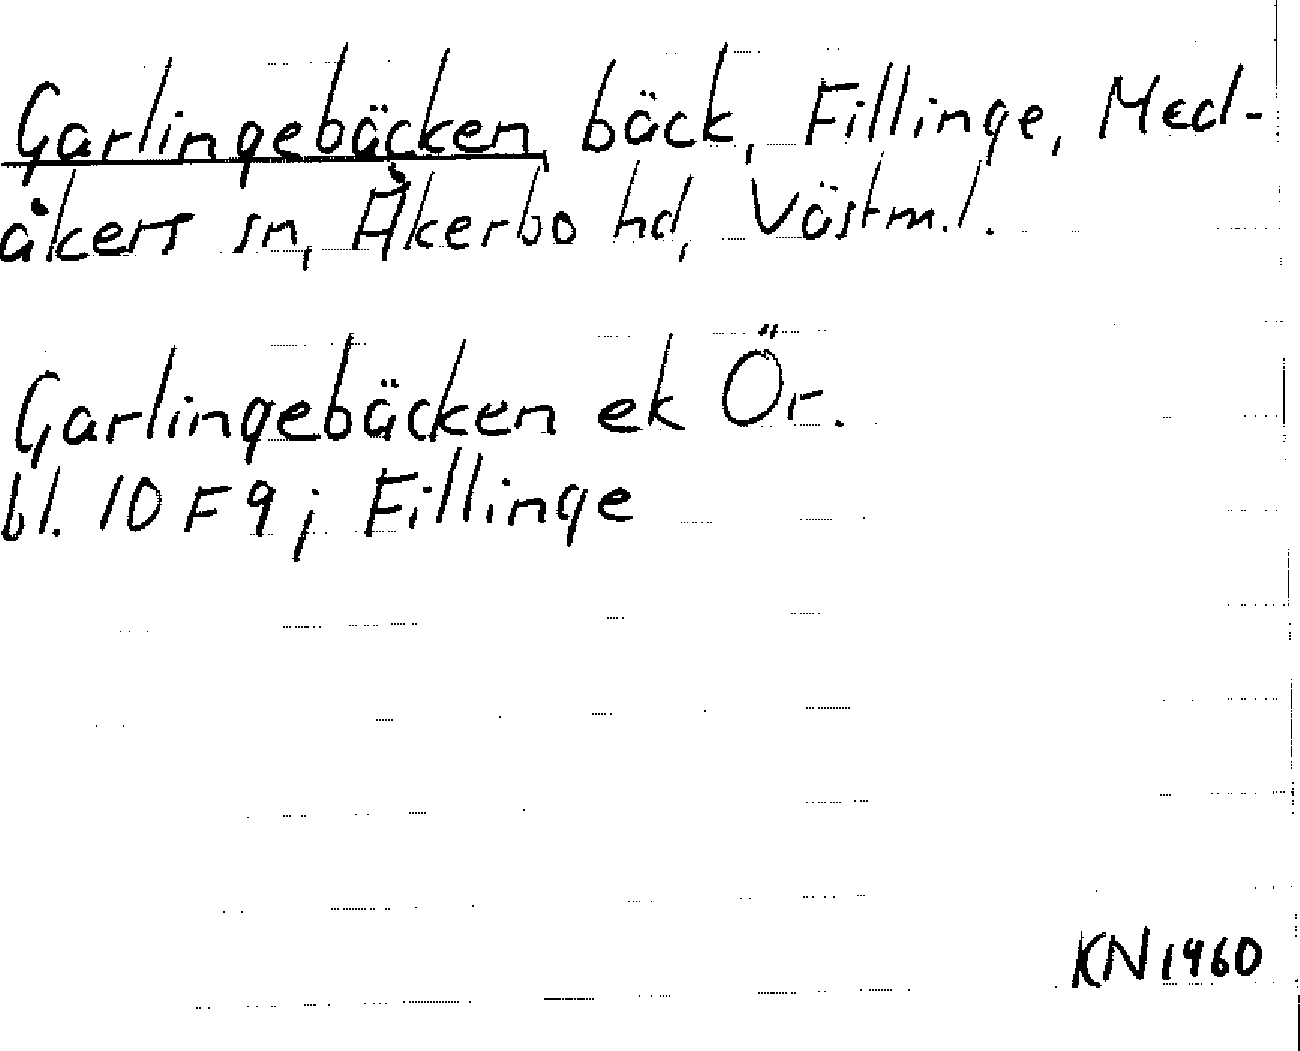 Garlingebäcken, bäck, Fillinge, Med-
åkers sn, Åkerbo hd, Västm.l.
Garlingebäcken ek Ör.
bl. 10 F 9; Fillinge
KN 1960